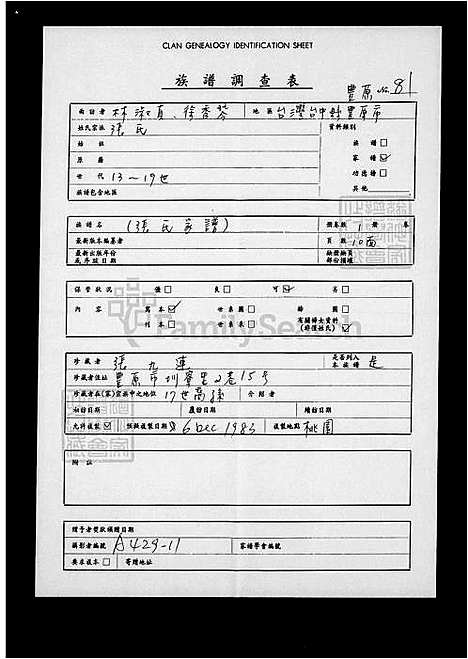 CLAN GENEALOGY IDENTIFICATION SHEET
族譜調查表
豐原 No. 81
面訪者 林淑真、徐香琴 地區 台灣台中縣豐原市
姓氏宗派 張氏 資料類別
始祖 族譜 □
原籍 家譜 ☑
世代 13~19世 功德譜 □
族譜包含地區 其他
族譜名 (張氏家譜) 冊卷數 1 冊 卷
最新版本編纂者 頁數 10面
最新出版年份 缺錯換頁
或序跋日期 部份損壞
保管狀況 佳 □ 良 □ 可 ☑ 劣 □
內容 寫本 ☑ 世系圖 □ 齡圖 □
刊本 □ 世系表 □ 有關婦女資料 (非僅姓氏) □
FamilySearch
珍藏者 張九連 是否列入本族譜 是
珍藏者住址 豐原市圳寮里2巷15号
珍藏者在(家)宗族中之地位 17世裔孫 介紹者
初訪日期 覆訪日期 續訪日期
允許複製 ☑ 複製日期 6 Dec 1983 複製地點 桃園
附註
贈予者獎狀捐贈日期
攝影者編號 A429-11 家譜學會編號
要求複本 □ 寄贈地址